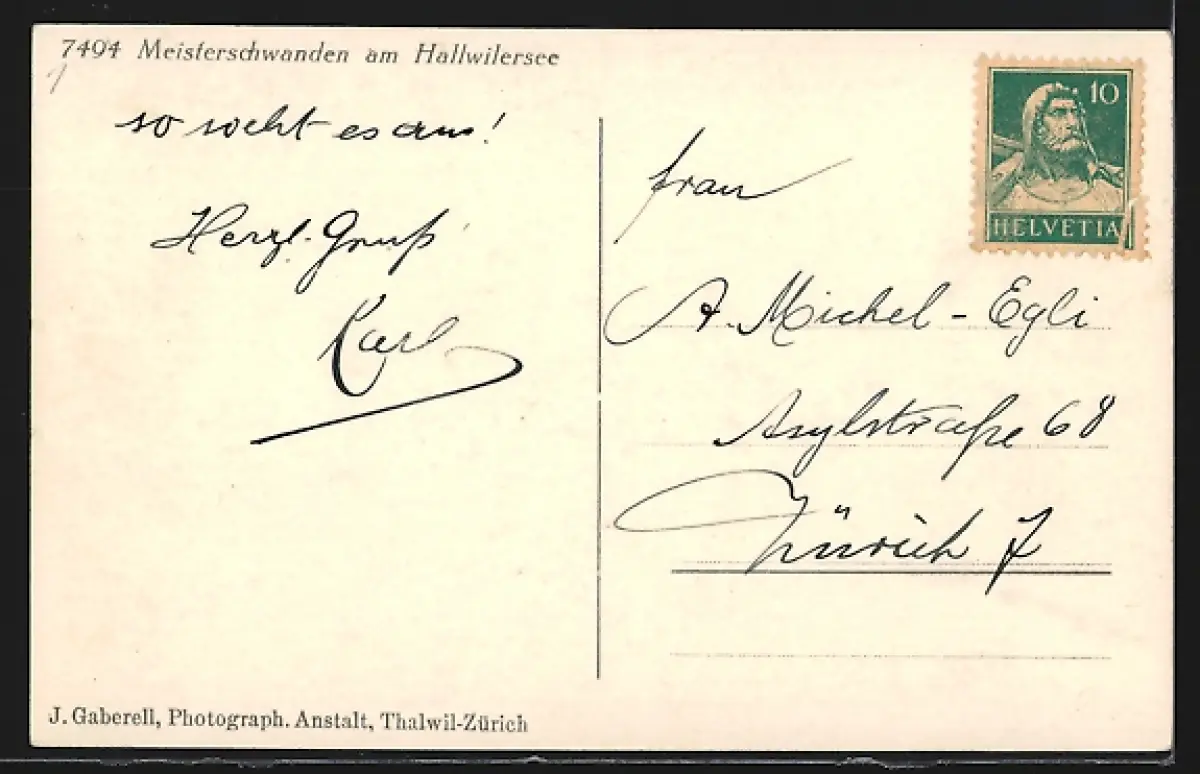 7494 Meisterschwanden am Hallwilersee
so sieht es aus!
Herzl. Gruß
Karl
10
HELVETIA
Frau
A. Michel-Egli
Asylstraße 68
Zürich 7
J. Gaberell, Photograph. Anstalt, Thalwil-Zürich